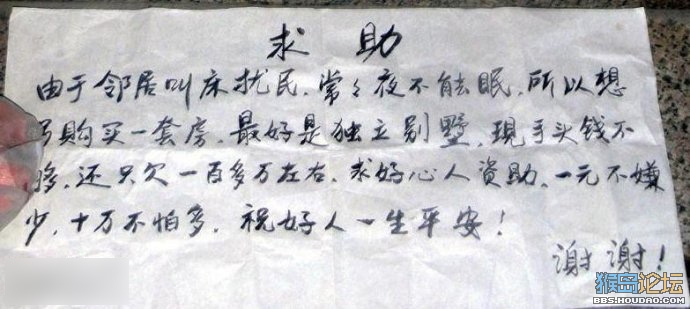 求 助
由于邻居叫床扰民,常々夜不能眠,所以想
购买一套房,最好是独立别墅,现手头钱不
够,还只欠一百多万左右,求好心人资助,一元不嫌
少,十万不怕多,祝好人一生平安!
谢谢!
猴岛论坛
BBS.HOUDAO.COM